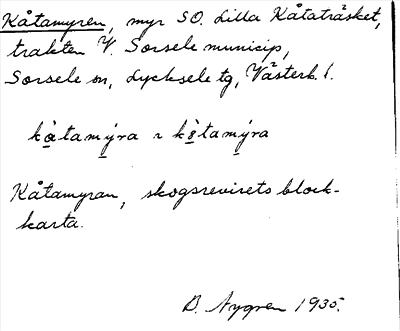 Kåtamyren, myr SO. Lilla Kåtaträsket,
trakten V. Sorsele municip,
Sorsele sn, Lycksele tg, Västerb. l.
kå̀tamýra ~ kö̀tamýra
Kåtamyran, skogsrevirets block-
karta.
B. Nygren 1935.